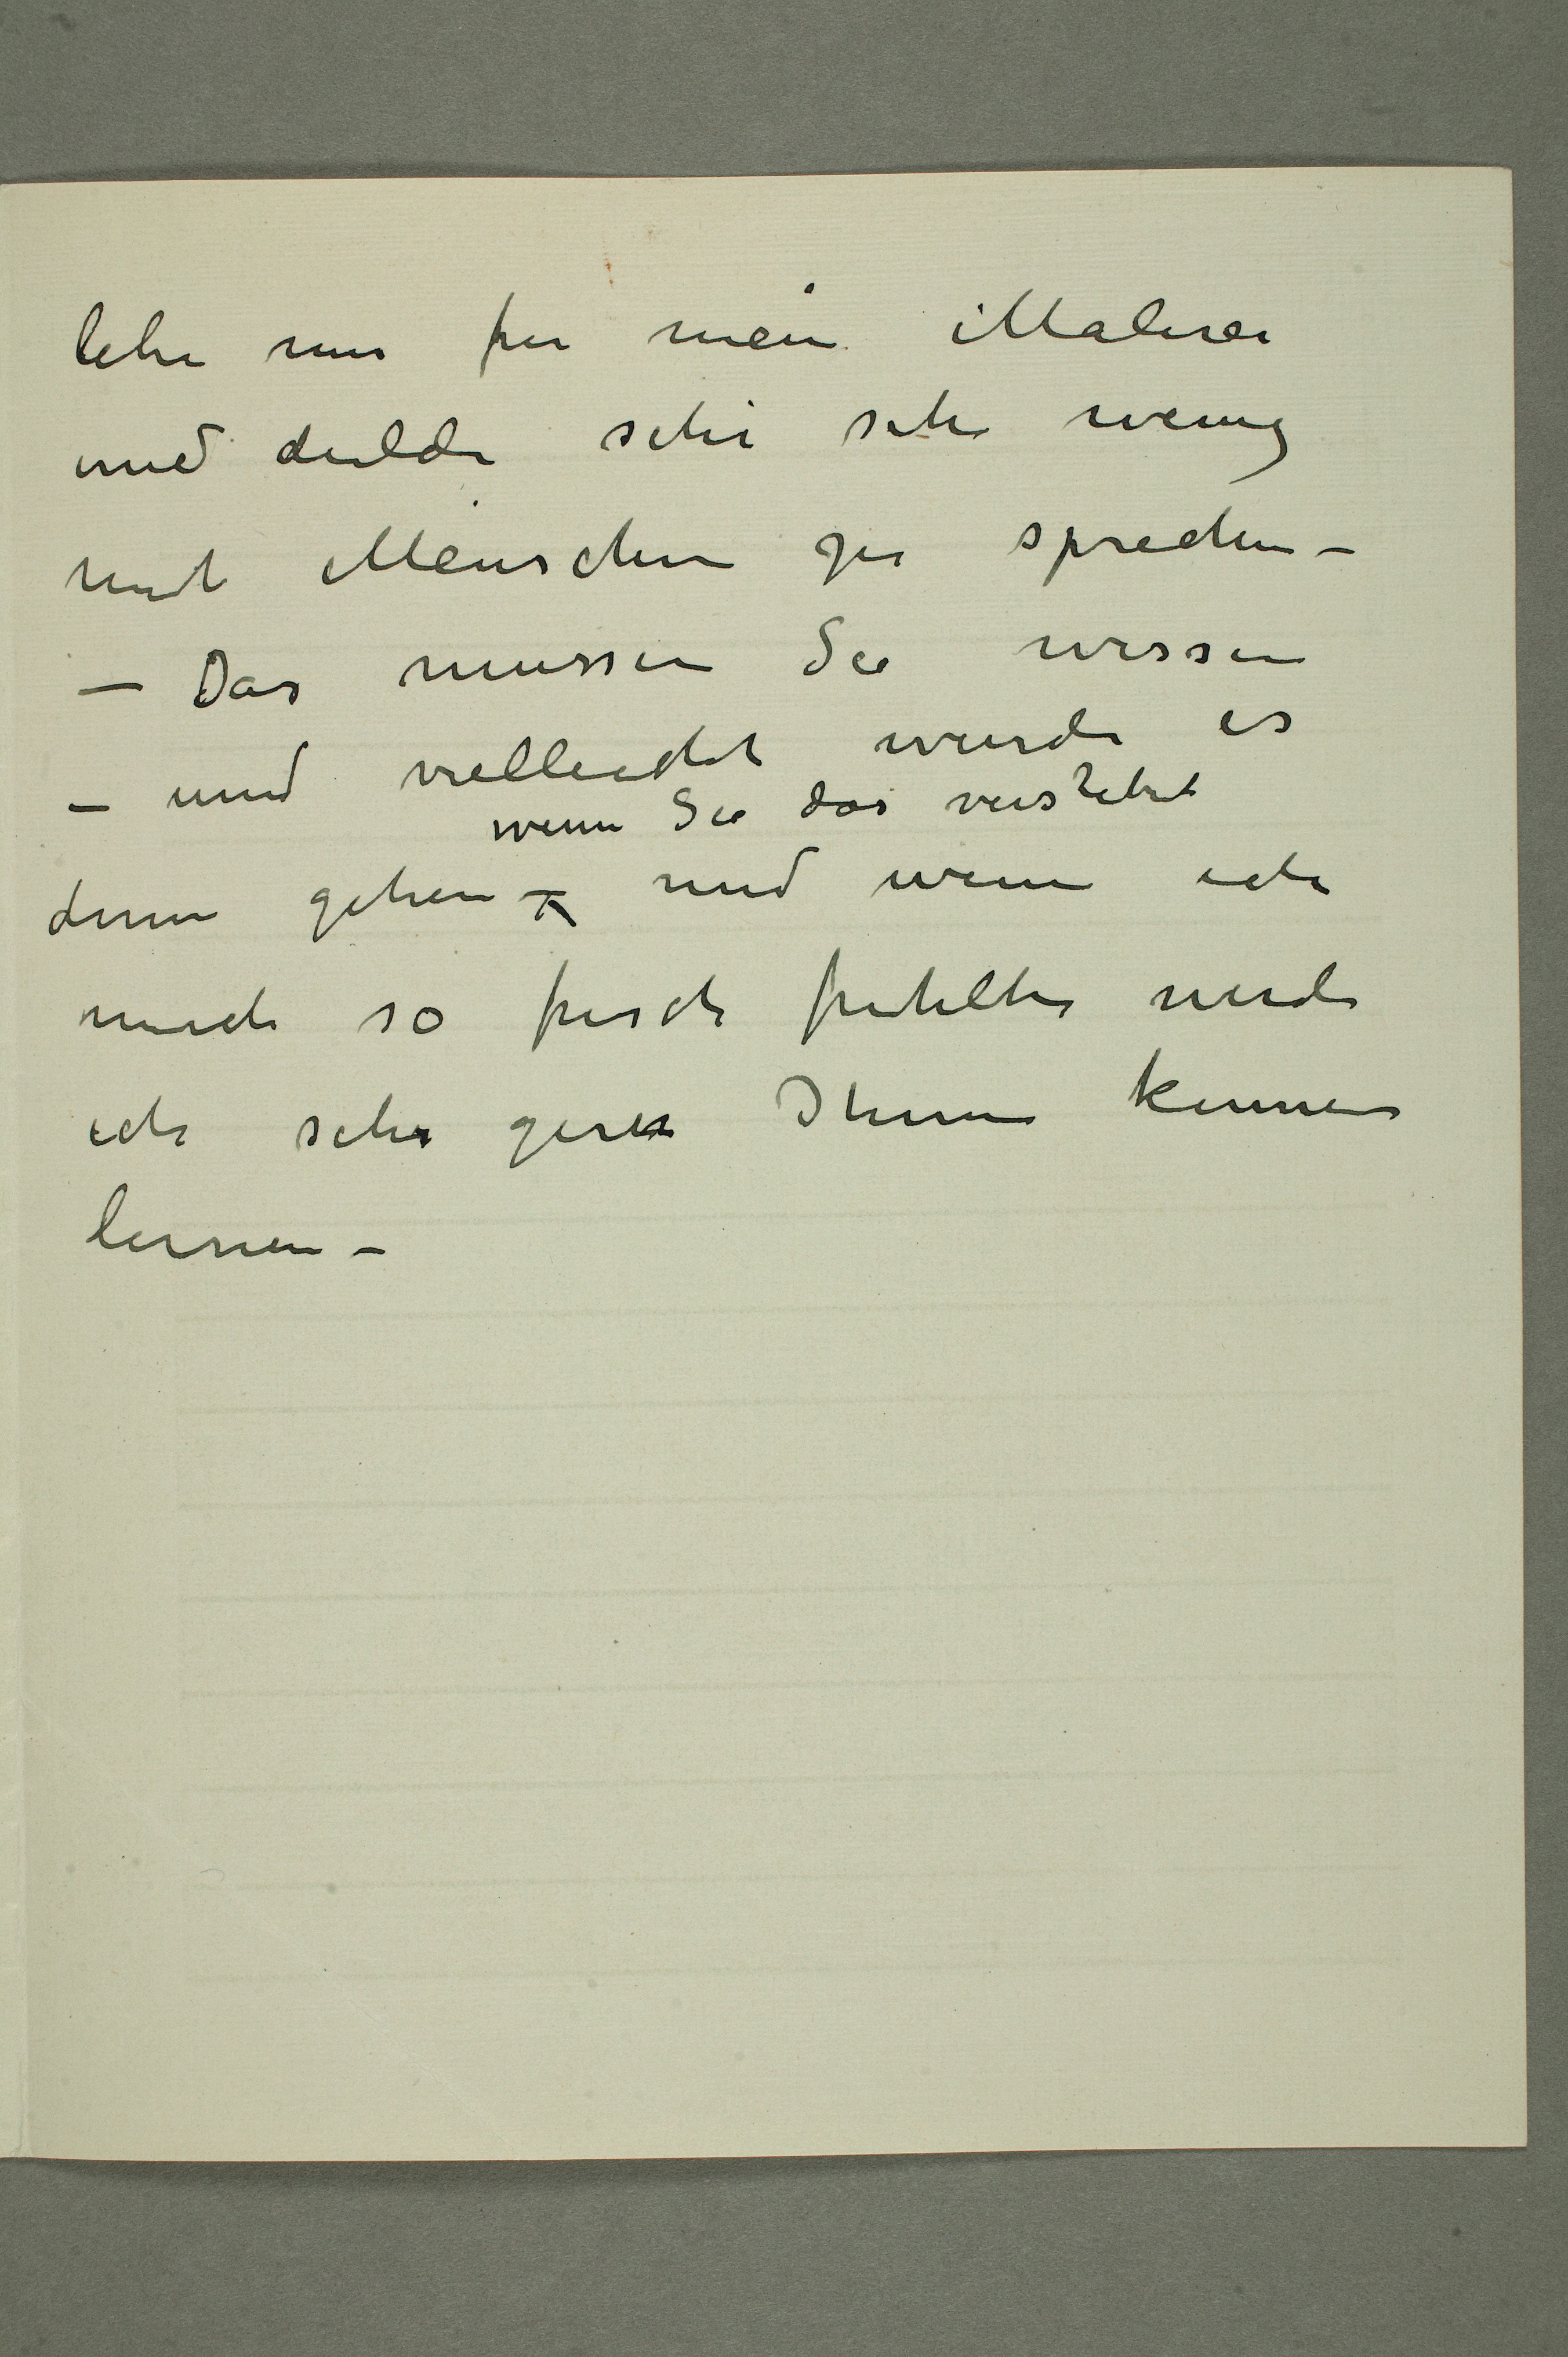 lebe nur fur mein Malerei
und dulde sehr sehr wenig
mit Menschen zu sprechen –
– Das mussen Sie wissen
– und vielleicht wurde es
wenn Sie das verstehet
denn gehen – und wenn ich
mich so frisch fuhlte werde
ich sehr gern Ihnen kennen
lernen –